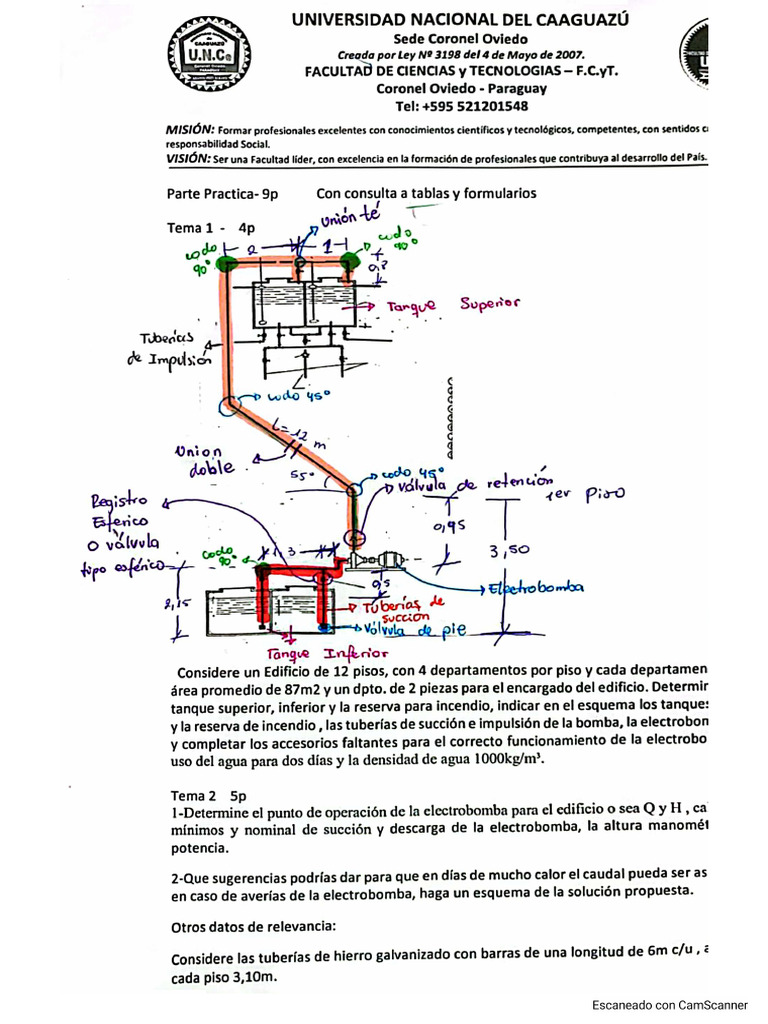 UNIVERSIDAD NACIONAL DEL CAAGUAZÚ
Sede Coronel Oviedo
Creada por Ley Nº 3198 del 4 de Mayo de 2007.
FACULTAD DE CIENCIAS y TECNOLOGIAS – F.C.yT.
Coronel Oviedo - Paraguay
Tel: +595 521201548
U.N.C.
MISIÓN: Formar profesionales excelentes con conocimientos científicos y tecnológicos, competentes, con sentidos
responsabilidad Social.
VISIÓN: Ser una Facultad líder, con excelencia en la formación de profesionales que contribuya al desarrollo del País.
Parte Practica- 9p Con consulta a tablas y formularios
Tema 1 - 4p
Unión té
codo 90°
2
1
codo 90°
Tanque Superior
Tuberías de Impulsión
codo 45°
L=12 m
Union doble
55°
codo 45°
Válvula de retención
1er Piso
Registro Esferico o válvula tipo esférico
0,95
3,50
codo 90°
3
Electrobomba
2,15
Tuberías de succion
Válvula de pie
Tanque Inferior
Considere un Edificio de 12 pisos, con 4 departamentos por piso y cada departamen
área promedio de 87m2 y un dpto. de 2 piezas para el encargado del edificio. Determir
tanque superior, inferior y la reserva para incendio, indicar en el esquema los tanques
y la reserva de incendio , las tuberías de succión e impulsión de la bomba, la electrobon
y completar los accesorios faltantes para el correcto funcionamiento de la electrobo
uso del agua para dos días y la densidad de agua 1000kg/m³.
Tema 2 5p
1-Determine el punto de operación de la electrobomba para el edificio o sea Q y H , ca
mínimos y nominal de succión y descarga de la electrobomba, la altura manomét
potencia.
2-Que sugerencias podrías dar para que en días de mucho calor el caudal pueda ser as
en caso de averías de la electrobomba, haga un esquema de la solución propuesta.
Otros datos de relevancia:
Considere las tuberías de hierro galvanizado con barras de una longitud de 6m c/u , a
cada piso 3,10m.
Escaneado con CamScanner